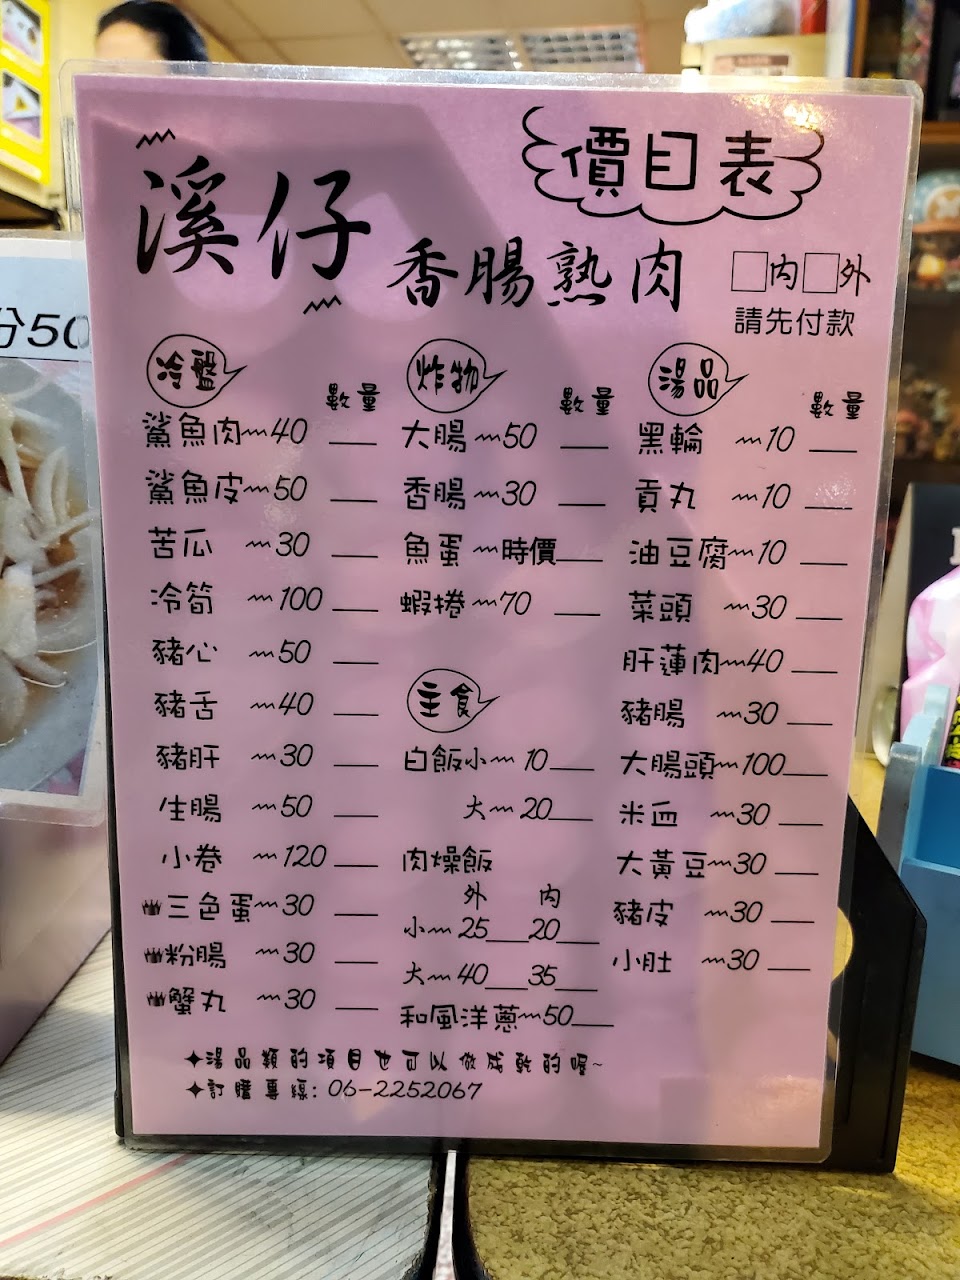 價目表
溪仔
香腸熟肉
□內□外
請先付款
冷盤
數量
鯊魚肉~40
鯊魚皮~50
苦瓜~30
冷筍~100
豬心~50
豬舌~40
豬肝~30
生腸~50
小卷~120
三色蛋~30
粉腸~30
蟹丸~30
炸物
數量
大腸~50
香腸~30
魚蛋~時價
蝦捲~70
主食
白飯小~10
大~20
肉燥飯
外 內
小~25 20
大~40 35
和風洋蔥~50
湯品
數量
黑輪~10
貢丸~10
油豆腐~10
菜頭~30
肝蓮肉~40
豬腸~30
大腸頭~100
米血~30
大黃豆~30
豬皮~30
小肚~30
✦湯品類的項目也可以做成乾的喔~
✦訂購專線: 06-2252067
份50